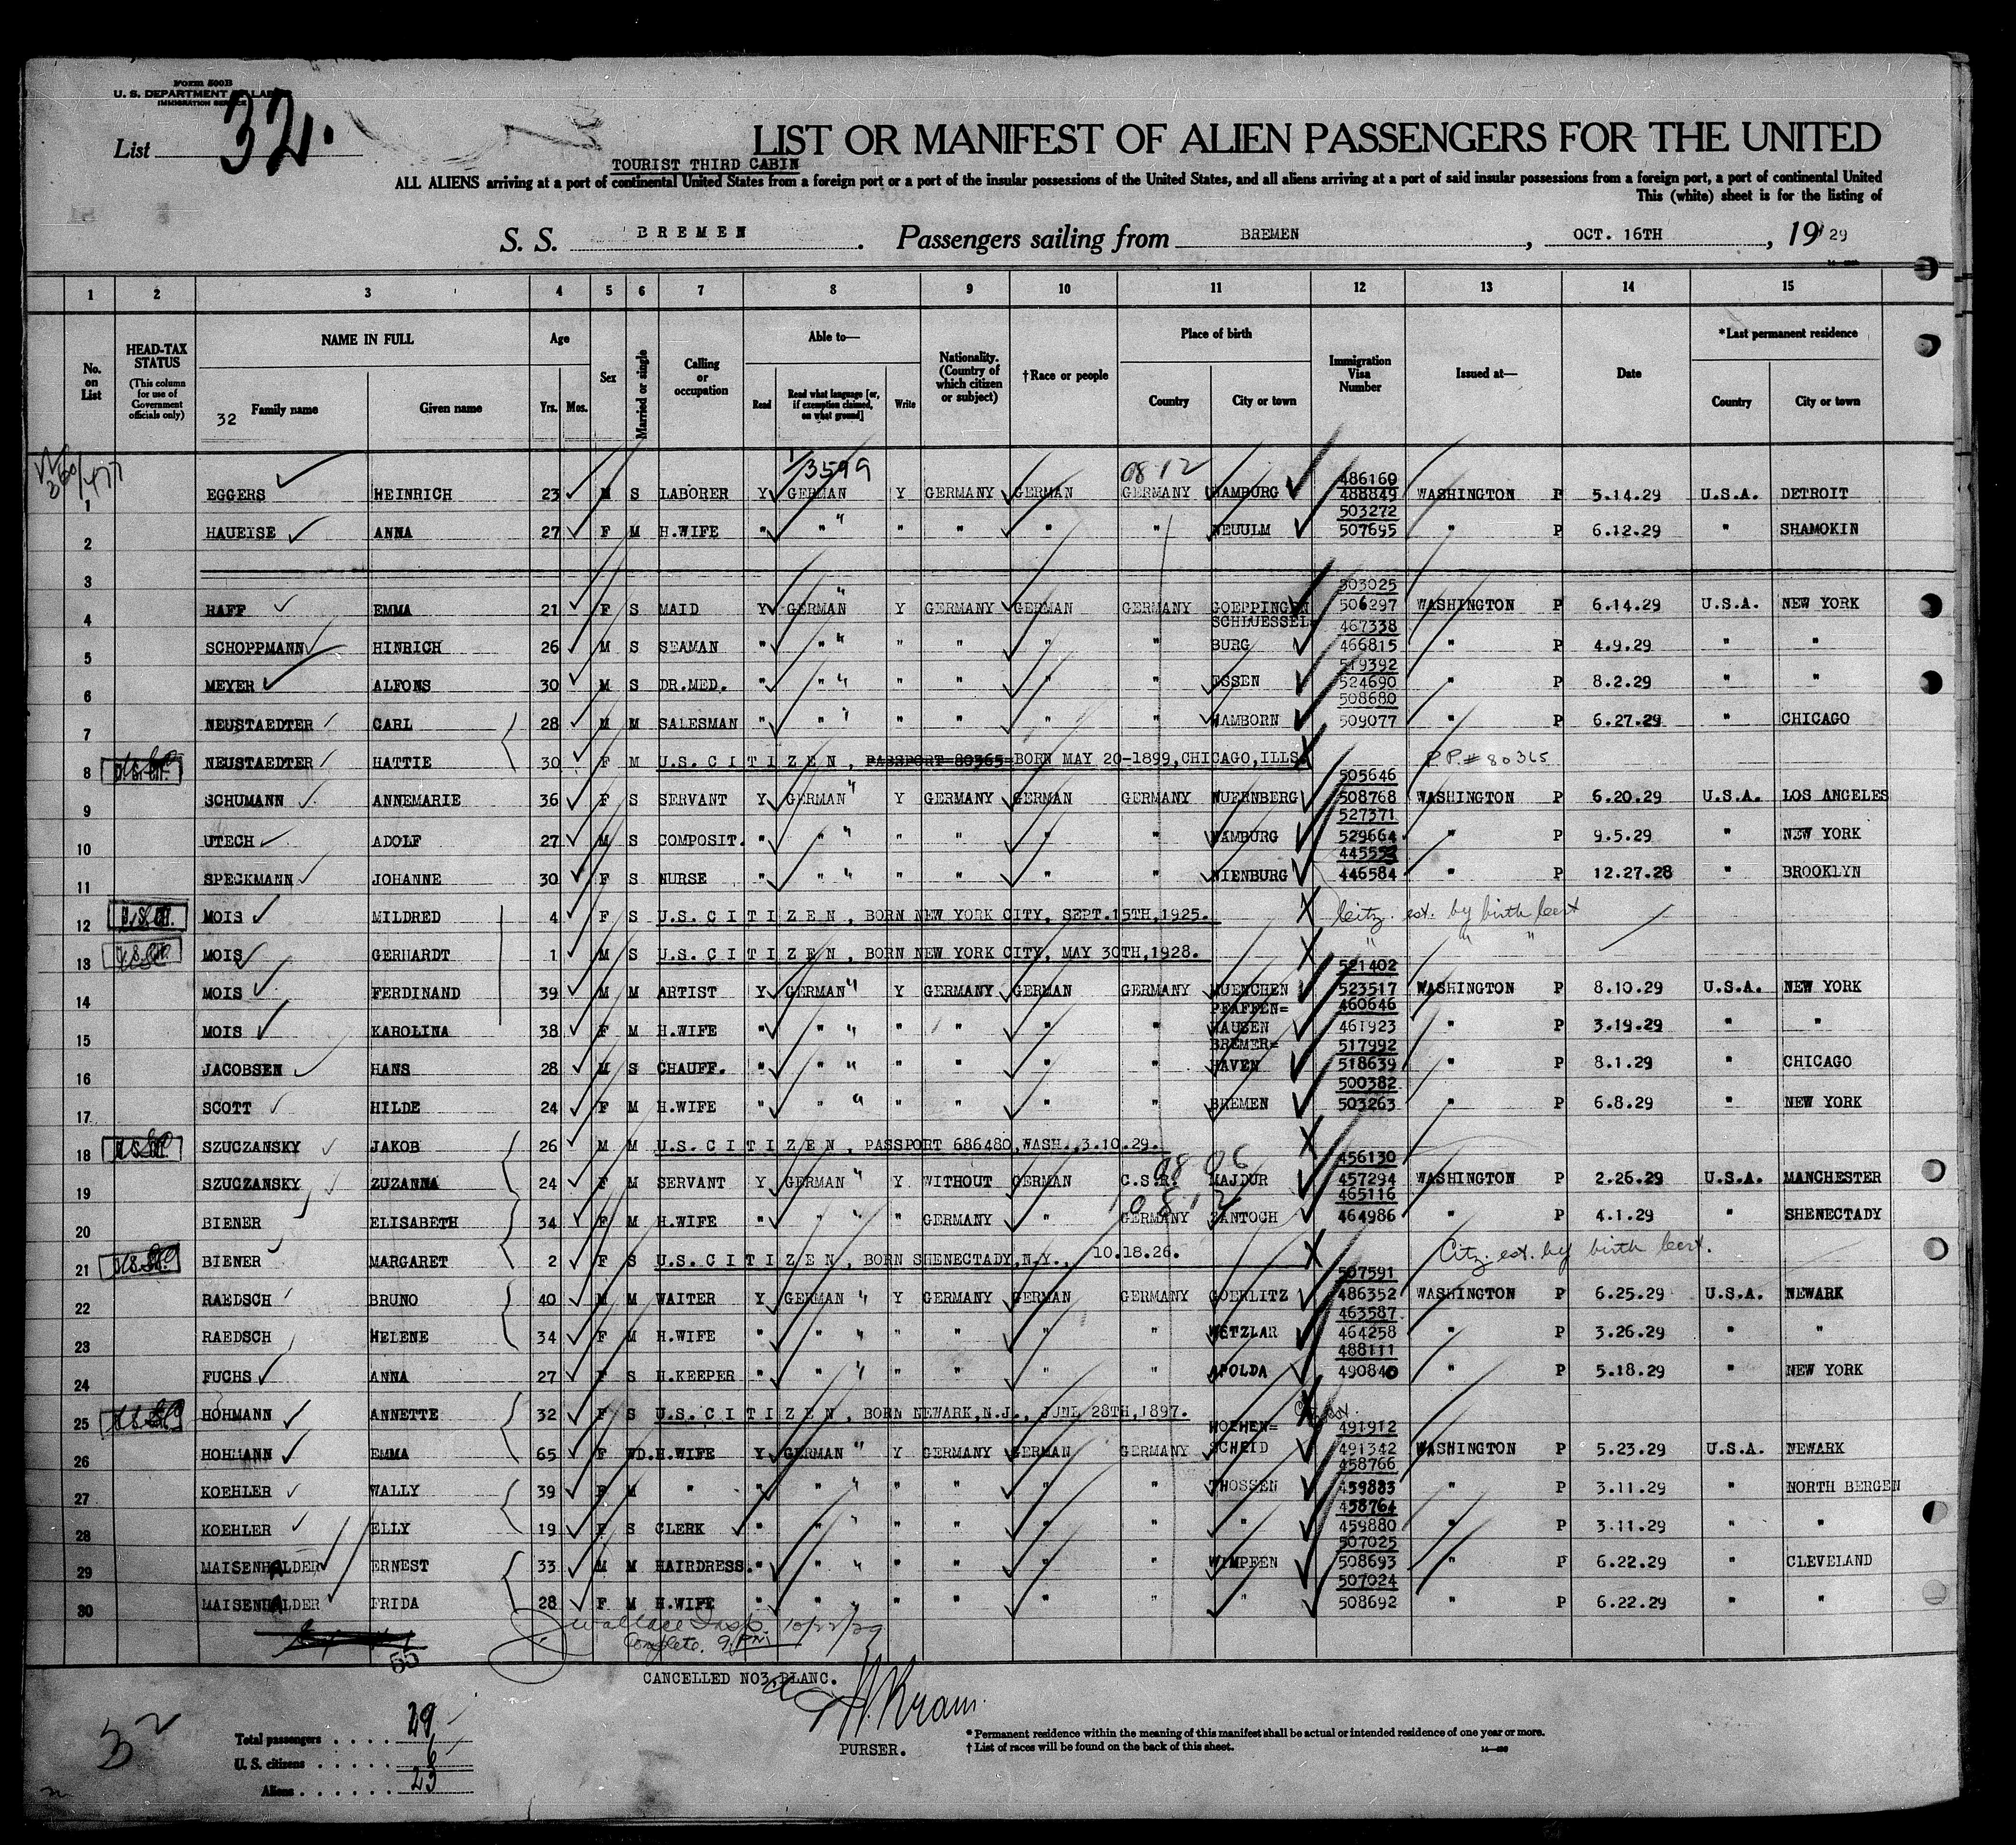 Form 500B
U. S. DEPARTMENT OF LABOR
IMMIGRATION SERVICE
List 32.
LIST OR MANIFEST OF ALIEN PASSENGERS FOR THE UNITED
TOURIST THIRD CABIN
ALL ALIENS arriving at a port of continental United States from a foreign port or a port of the insular possessions of the United States, and all aliens arriving at a port of said insular possessions from a foreign port, a port of continental United
This (white) sheet is for the listing of
S. S. BREMEN. Passengers sailing from BREMEN, OCT. 16TH, 1929
1 2 3 4 5 6 7 8 9 10 11 12 13 14 15
No. on List
HEAD-TAX STATUS (This column for use of Government officials only)
NAME IN FULL
32 Family name Given name
Age Yrs. Mos.
Sex
Married or single
Calling or occupation
Able to—
Read Read what language [or, if exemption claimed, on what ground] Write
Nationality. (Country of which citizen or subject)
†Race or people
Place of birth
Country City or town
Immigration Visa Number
Issued at—
Date
*Last permanent residence
Country City or town
1/3599 0812
1 EGGERS HEINRICH 23 M S LABORER Y GERMAN Y GERMANY GERMAN GERMANY HAMBURG 486160 488849 WASHINGTON P 5.14.29 U.S.A. DETROIT
2 HAUEISE ANNA 27 F M H.WIFE " " " " " " " NEUULM 503272 507695 " P 6.12.29 " SHAMOKIN
3
4 RAFF EMMA 21 F S MAID Y GERMAN " Y GERMANY GERMAN GERMANY GOEPPINGEN 503025 506297 WASHINGTON P 6.14.29 U.S.A. NEW YORK
5 SCHOPPMANN HINRICH 26 M S SEAMAN " " " " " " " SCHLUESSEL BURG 467338 466815 " P 4.9.29 " "
6 MEYER ALFONS 30 M S DR.MED. " " " " " " " ESSEN 519392 524690 " P 8.2.29 " "
7 NEUSTAEDTER CARL 28 M M SALESMAN " " " " " " " HAMBORN 508680 509077 " P 6.27.29 " CHICAGO
8 NEUSTAEDTER HATTIE 30 F M U.S. CITIZEN, PASSPORT 80365 BORN MAY 20-1899,CHICAGO,ILLS P.P.# 80365
9 SCHUMANN ANNEMARIE 36 F S SERVANT Y GERMAN " Y GERMANY GERMAN GERMANY NUERNBERG 505646 508768 WASHINGTON P 6.20.29 U.S.A. LOS ANGELES
10 UTECH ADOLF 27 M S COMPOSIT. " " " " " " " HAMBURG 527371 529664 " P 9.5.29 " NEW YORK
11 SPECKMANN JOHANNE 30 F S NURSE " " " " " " " NIENBURG 445553 446584 " P 12.27.28 " BROOKLYN
12 MOIS MILDRED 4 F S U.S. CITIZEN, BORN NEW YORK CITY, SEPT.15TH,1925. Citz. est. by birth cert
13 MOIS GERHARDT 1 M S U.S. CITIZEN, BORN NEW YORK CITY, MAY 30TH,1928. " " "
14 MOIS FERDINAND 39 M M ARTIST Y GERMAN " Y GERMANY GERMAN GERMANY MUENCHEN 521402 523517 WASHINGTON P 8.10.29 U.S.A. NEW YORK
15 MOIS KAROLINA 38 F M H.WIFE " " " " " " " PFAFFEN= HAUSEN 460646 461923 " P 3.19.29 " "
16 JACOBSEN HANS 28 M S CHAUFF. " " " " " " " BREMER= HAVEN 517992 518639 " P 8.1.29 " CHICAGO
17 SCOTT HILDE 24 F M H.WIFE " " " " " " " BREMEN 500382 503263 " P 6.8.29 " NEW YORK
18 SZUCZANSKY JAKOB 26 M M U.S. CITIZEN, PASSPORT 686480,WASH.,3.10.29.
08 06
19 SZUCZANSKY ZUZANNA 24 F M SERVANT Y GERMAN " Y WITHOUT GERMAN C.S.R. MAJDUR 456130 457294 WASHINGTON P 2.26.29 U.S.A. MANCHESTER
0812
20 BIENER ELISABETH 34 F M H.WIFE " " " " GERMANY " GERMANY ZANTOCH 465116 464986 " P 4.1.29 " SHENECTADY
21 BIENER MARGARET 2 F S U.S. CITIZEN, BORN SHENECTADY,N.Y., 10.18.26. Citz. est. by birth cert.
22 RAEDSCH BRUNO 40 M M WAITER Y GERMAN " Y GERMANY GERMAN GERMANY GOERLITZ 507591 486352 WASHINGTON P 6.25.29 U.S.A. NEWARK
23 RAEDSCH HELENE 34 F M H.WIFE " " " " " " " WETZLAR 463587 464258 " P 3.26.29 " "
24 FUCHS ANNA 27 F S H.KEEPER " " " " " " " APOLDA 488111 490840 " P 5.18.29 " NEW YORK
25 HOHMANN ANNETTE 32 F S U.S. CITIZEN, BORN NEWARK,N.J., JUNE 28TH,1897.
26 HOHMANN EMMA 65 F WD. H.WIFE Y GERMAN " Y GERMANY GERMAN GERMANY SCHEID 491912 491342 WASHINGTON P 5.23.29 U.S.A. NEWARK
27 KOEHLER WALLY 39 F M " " " " " " " " THOSSEN 458766 459883 " P 3.11.29 " NORTH BERGEN
28 KOEHLER ELLY 19 F S CLERK " " " " " " " " 458764 459880 " P 3.11.29 " "
29 MAISENHALDER ERNEST 33 M M HAIRDRESS. " " " " " " " WIMPFEN 507025 508693 " P 6.22.29 " CLEVELAND
30 MAISENHALDER FRIDA 28 F M H.WIFE " " " " " " " " 507024 508692 " P 6.22.29 " "
Wallace Insp. 10/22/29
Complete. 9 PM
55
CANCELLED NO3.BLANC.
H. Kram.
PURSER.
32
Total passengers . . . . 29
U. S. citizens . . . . . 6
Aliens . . . . . . 23
* Permanent residence within the meaning of this manifest shall be actual or intended residence of one year or more.
† List of races will be found on the back of this sheet.